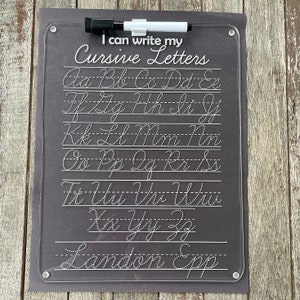 I can write my
Cursive Letters
Aa Bb Cc Dd Ee
Ff Gg Hh Ii Jj
Kk Ll Mm Nn
Oo Pp Qq Rr Ss
Tt Uu Vv Ww
Xx Yy Zz
Landon Epp